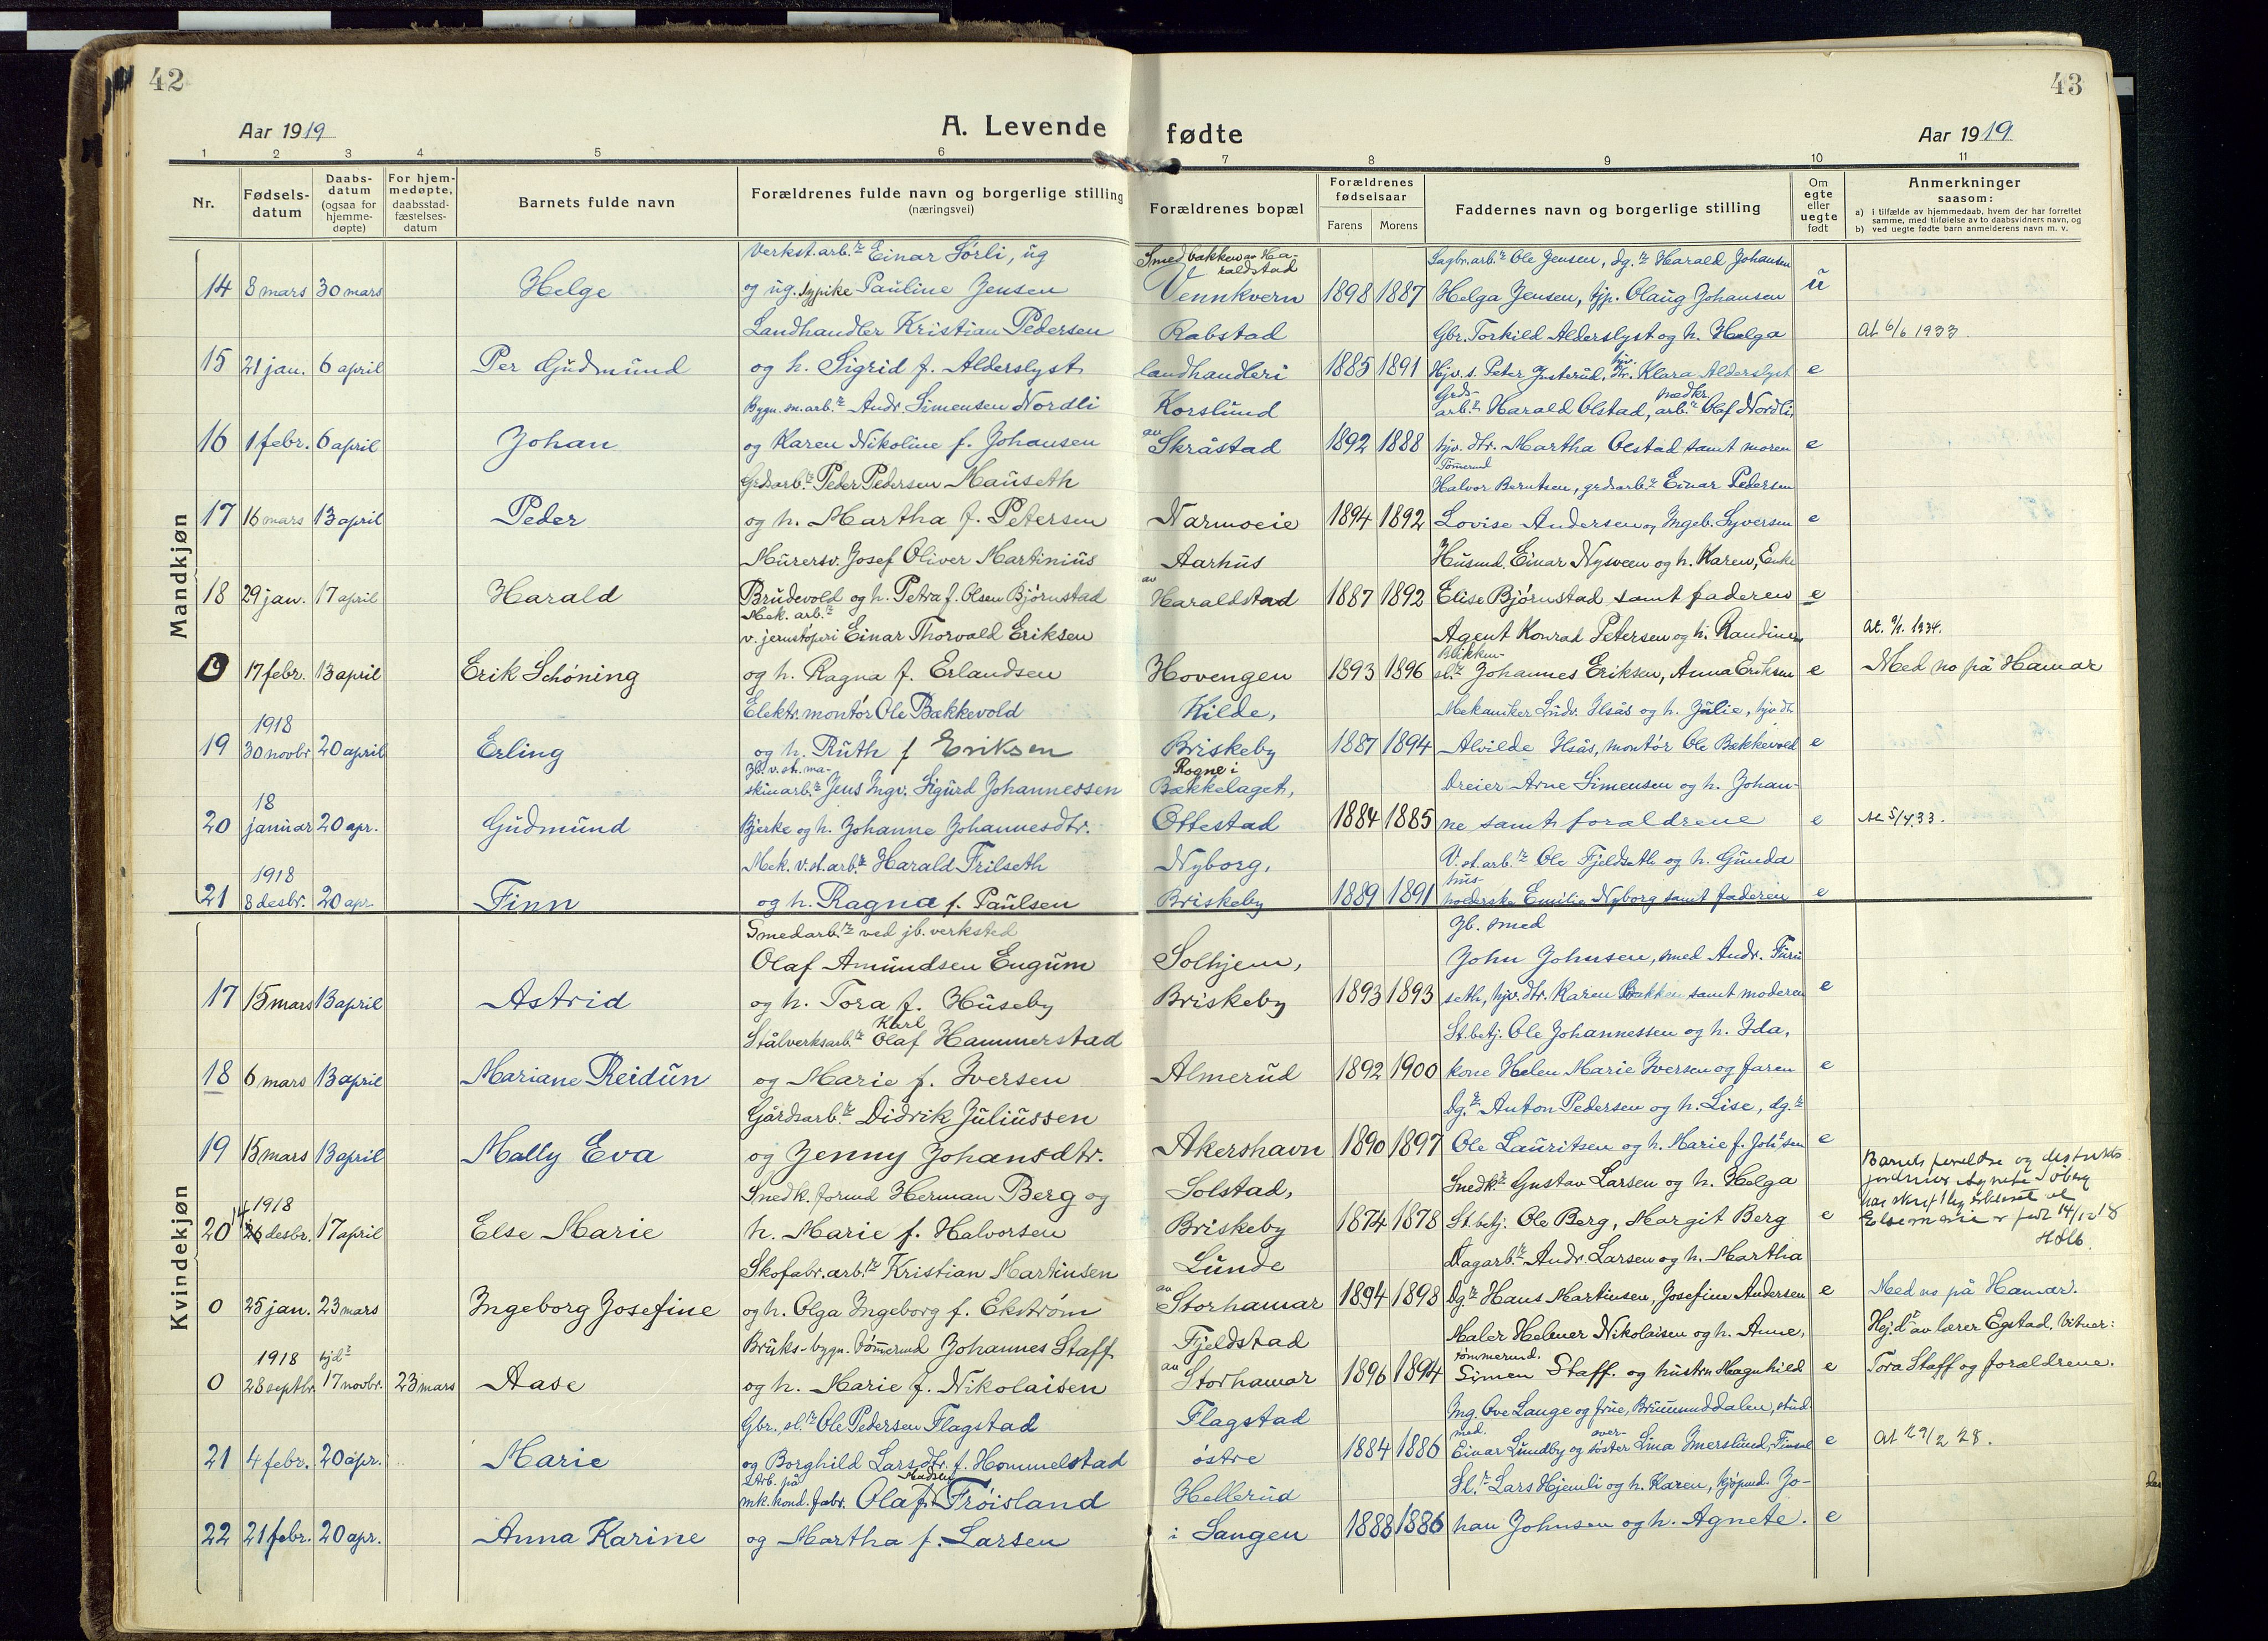 42
43
Aar 1919
A. Levende fødte
Aar 1919
1 2 3 4 5 6 7 8 9 10 11
Nr.
Fødsels-
datum
Daabs-
datum
(ogsaa for
hjemme-
døpte)
For hjem-
medøpte,
daabsstad-
fæstelses-
datum
Barnets fulde navn
Forældrenes fulde navn og borgerlige stilling
(næringsvei)
Forældrenes bopæl
Forældrenes
fødselsaar
Farens Morens
Faddernes navn og borgerlige stilling
Om
egte
eller
uegte
født
Anmerkninger
saasom:
a) i tilfælde av hjemmedaab, hvem der har forrettet
samme, med tilføielse av to daabsvidners navn, og
b) ved uegte fødte barn anmelderens navn m. v.
Mandkjøn
Verkst.arb.r Einar Sørli, ug Smedbakken av Ha- Sagbr.arb.r Ole Jensen, dg.r Harald Johansen
raldstad
14 8 mars 30 mars Helge og ug. sypike Pauline Jensen Vennkvern 1898 1887 Helga Jensen, tjp. Olaug Johansen ü
Landhandler Kristian Pedersen Rabstad Gbr. Torkild Alderslyst og h. Helga At 6/6 1933
15 21 jan. 6 april Per Gudmund og h. Sigrid f. Alderslyst landhandleri 1885 1891 Hjv. s. Peter Justerud, hjv. dtr. Klara Alderslyst e
Bygn.sn.arb.r Andr. Simensen Nordli Korslund Grds-
arb.r Harald Olstad, snedkr. arb.r Olaf Nordli,
16 1 febr. 6 april Johan og Karen Nikoline f. Johansen av Skråstad 1892 1888 hjv. dtr. Martha Olstad samt moren e
Grdsarb.r Peder Pedersen Mauseth Tømmermd
Halvor Berntsen, grdsarb.r Einar Pedersen
17 16 mars 13 april Peder og h. Martha f. Petersen Narmoeie 1894 1892 Lovise Andersen og Ingeb. Syversen e
Murersv. Josef Oliver Martinius Aarhus Husmd. Einar Nysveen og h. Karen, Enke
18 29 jan. 17 april Harald Brudevold og h. Petra f. Olsen Bjørnstad av Haraldstad 1887 1892 Elise Bjørnstad samt faderen e
Mek. arb.r
v. jernstøperi Einar Thorvald Eriksen Agent Konrad Petersen og h. Randine At. 9/1. 1934.
0 17 febr. 13 april Erik Schöning og h. Ragna f. Erlandsen Hovengen 1893 1896 Blikken-
sl.r Johannes Eriksen, Anna Eriksen e Med no på Hamar
Elektr. montør Ole Bækkevold Kilde, Mekaniker Ludv. Ilsås og h. Julie, hjv. dtr.
1918
19 30 novbr 20 april Erling og h. Ruth f Eriksen Briskeby 1887 1894 Alvilde Ilsås, montør Ole Bækkevold e
Jb. v. st. ma- Rogne i
skinarb.r Jens Ingv. Sigurd Johannessen Bækkelaget, Dreier Arne Simensen og h. Johan-
18
20 januar 20 apr. Gudmund Bjerke og h. Johanne Johannesdtr. Ottestad 1884 1885 ne samt forældrene e At 5/4 33.
Mek. v.st.arb.r Harald Frilseth Nyborg, V.st.arb.r Ole Fjeldseth og h. Gunda
1918
21 8 desbr. 20 apr. Finn og h. Ragna f. Paulsen Briskeby 1889 1891 hus-
holderske Emilie Nyborg samt faderen e
Kvindekjøn
Smedarb.r ved jb. verksted Jb. smed
Olaf Amundsen Engum Solhjem, John Johnsen, smed Andr. Furu
17 15 mars 13 april Astrid og h. Tora f. Huseby Briskeby 1893 1893 seth, hjv. dtr. Karen Bakken samt moderen e
Stålverksarb.r Karl Olaf Hammerstad St.betj. Ole Johannessen og h. Ida,
18 6 mars 13 april Mariane Reidun og Marie f. Iversen Almerud 1892 1900 kone Helen Marie Iversen og faren e
Gårdsarb.r Didrik Juliussen Dg.r Anton Pedersen og h. Lise, dg.r
19 15 mars 13 april Mally Eva og Jenny Johansdtr. Akershavn 1890 1897 Ole Lauritsen og h. Marie f. Johsen e
Snedk. formd Herman Berg og Solstad, Snedk.r Gustav Larsen og h. Helga Barnets foreldre og distrikts
jordmor Agnete Søberg
1918
20 14 26 desbr. 17 april Else Marie h. Marie f. Halvorsen Briskeby 1874 1878 St.betj. Ole Berg, Margit Berg e har skriftlig erklæret at
Else Marie er født 14/12 18
Skofabr.arb.r Kristian Martinsen Lunde Dagarb.r Andr. Larsen og h. Martha
0 25 jan. 23 mars Ingeborg Josefine og h. Olga Ingeborg f. Ekstrøm av Storhamar 1894 1898 Dg.r Hans Martinsen, Josefine Andersen e Med no på Hamar.
Bruks-bygn. tømmermd Johannes Staff Fjeldstad Maler Helmer Nikolaisen og h. Anne, Hej. d. av lærer Egstad. Vitner:
1918 hjd.
0 28 septbr 17 novbr. 23 mars Aase og h. Marie f. Nikolaisen av Storhamar 1896 1894 tømmermd. Simen Staff. og hustru Magnhild e Tora Staff og forældrene.
Gbr., sl.r Ole Pedersen Flagstad Flagstad Ing. Ove Lange og frue, Brummunddalen, stud.
21 4 febr. 20 apr. Marie og Borghild Larsdtr. f. Hommelstad østre 1884 1886 med. Einar Lundby og over-søster Lina Imerslund, e At 29/2 28.
Arb. på
mk. kond. fabr. Olaf Madsen Frøisland Hellerud Sl.r Lars Hjemli og h. Karen, kjøpmd. Jo-
22 21 febr. 20 apr. Anna Karine og Martha f. Larsen i Sangen 1888 1886 han Johnsen og h. Agnete. e